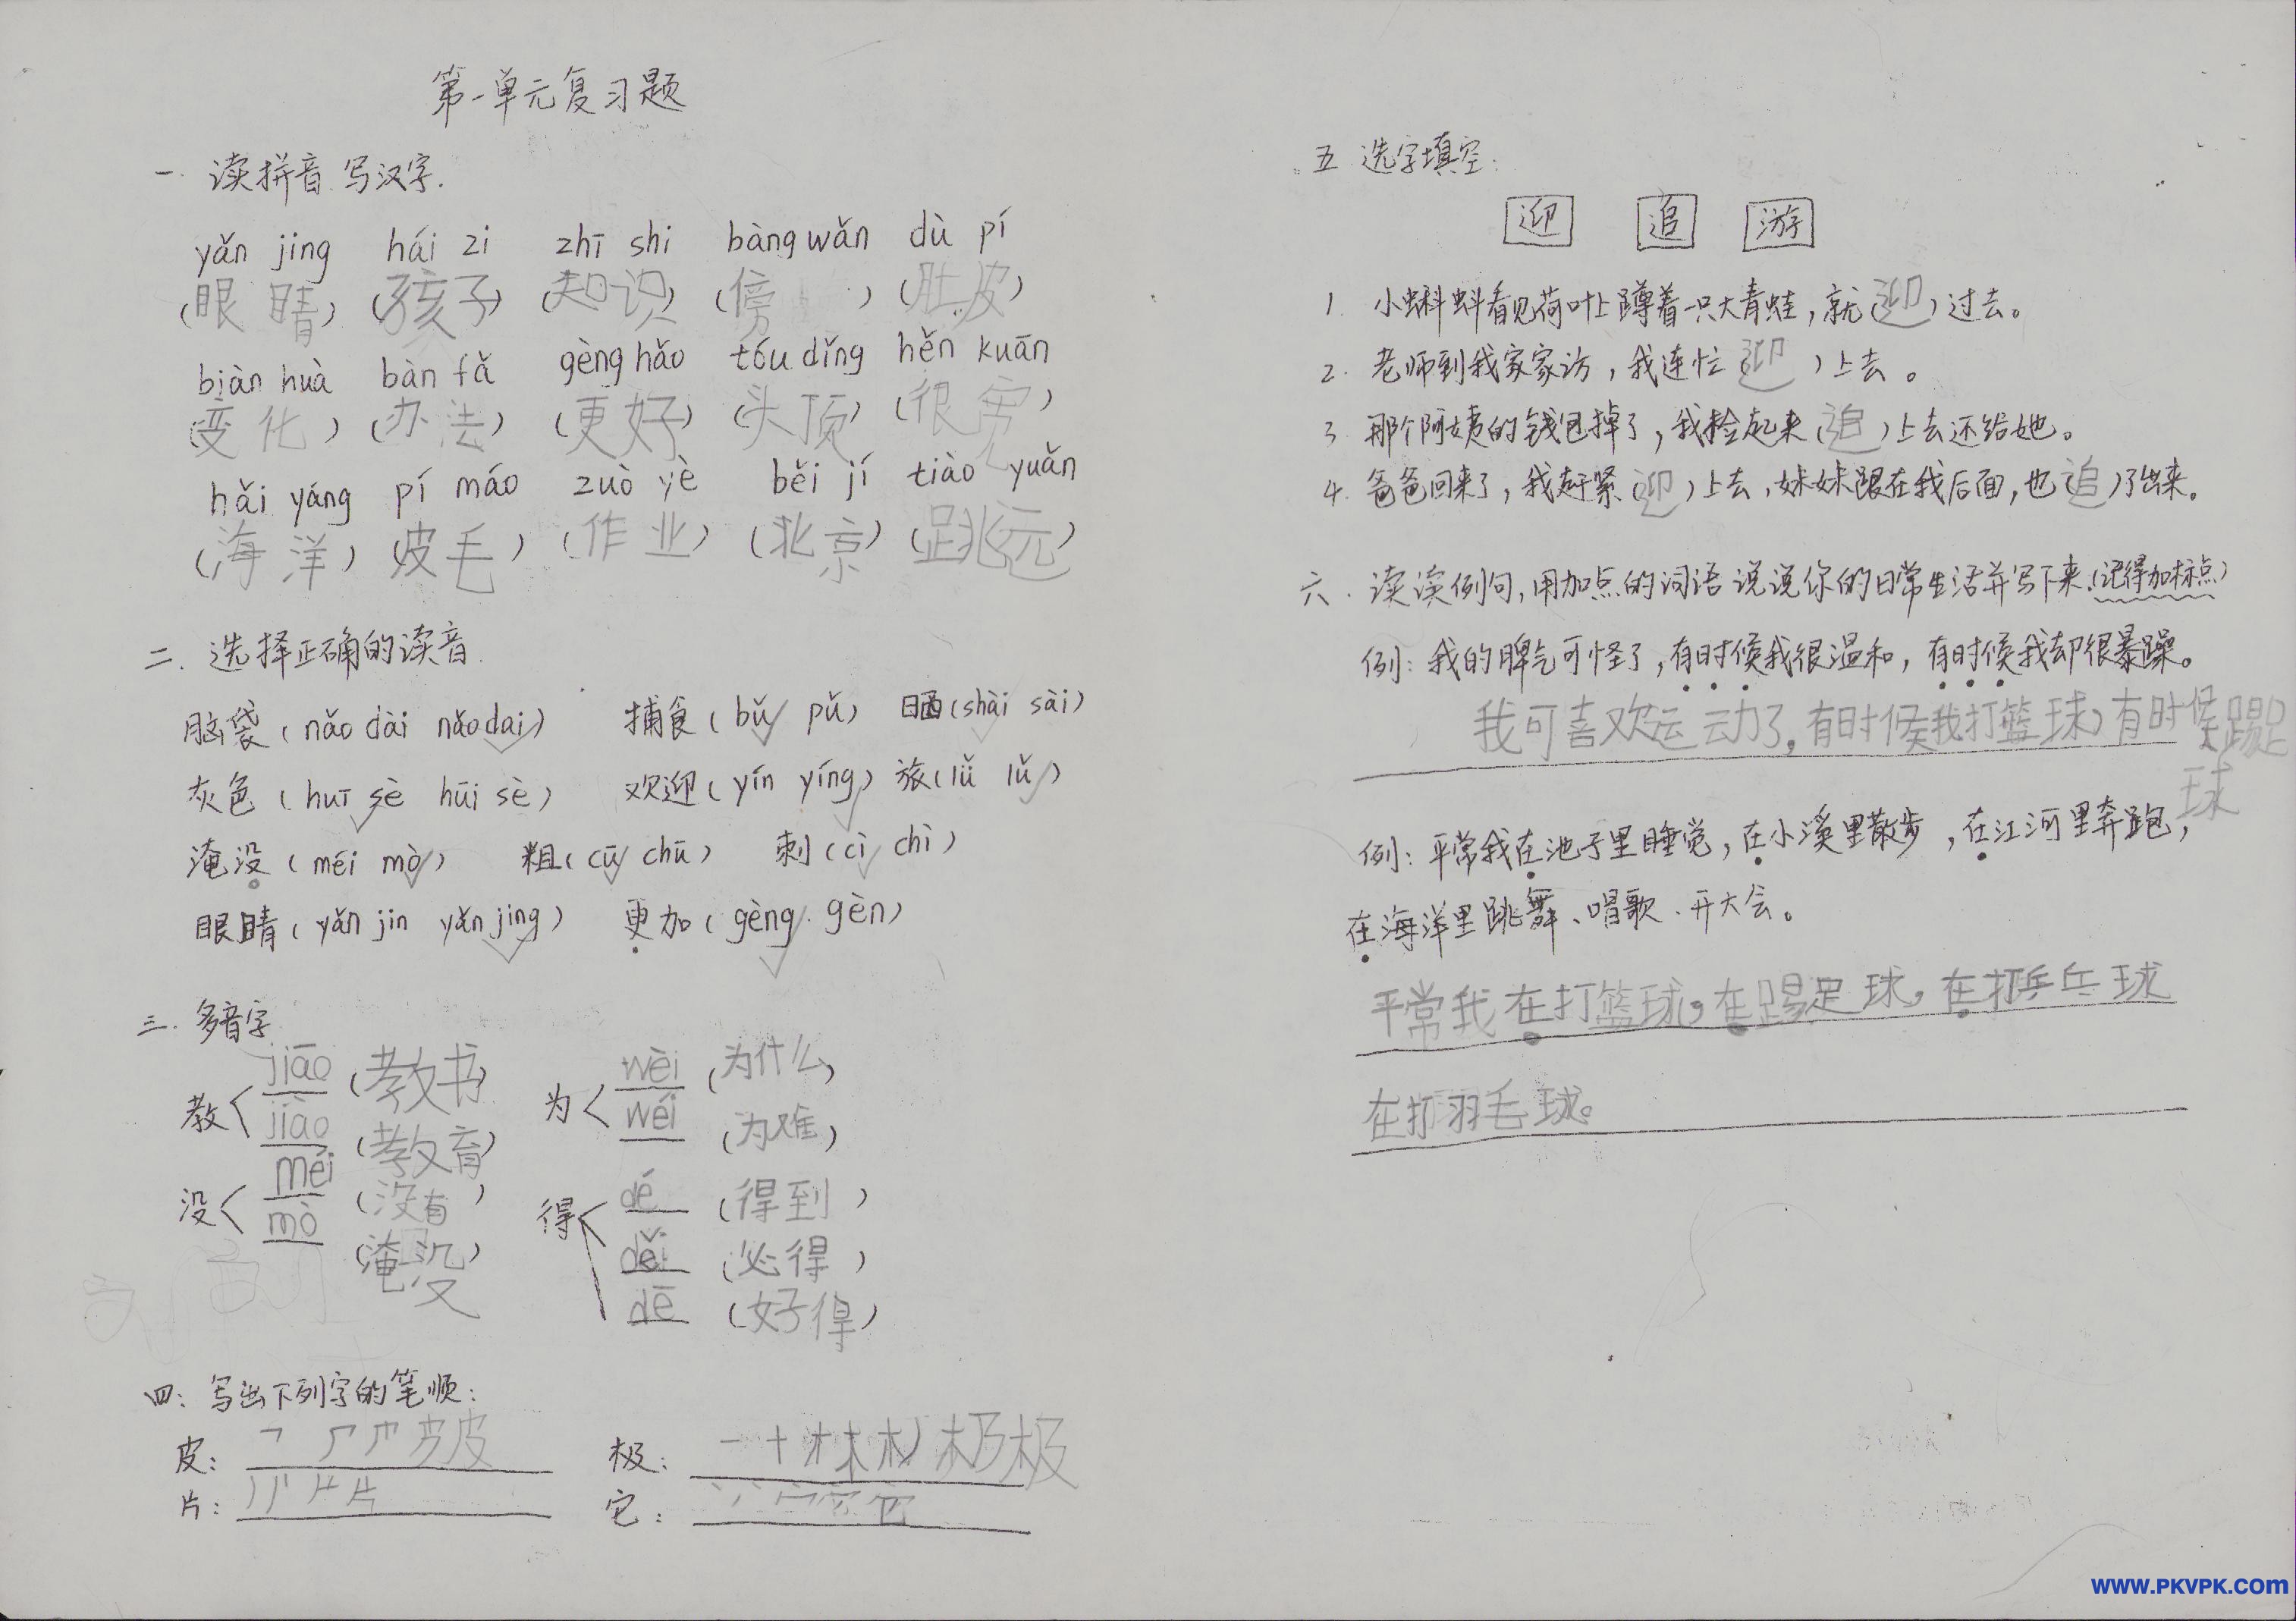 第一单元复习题
一. 读拼音 写汉字.
yǎn jing hái zi zhī shi bàng wǎn dù pí
(眼睛) (孩子) (知识) (傍 ) (肚皮)
biàn huà bàn fǎ gèng hǎo tóu dǐng hěn kuān
(变化) (办法) (更好) (头顶) (很宽)
hǎi yáng pí máo zuò yè běi jí tiào yuǎn
(海洋) (皮毛) (作业) (北京) (跳远)
二. 选择正确的读音.
脑袋 (nǎo dài nǎo dai) 捕食 (bǔ pǔ) 晒 (shài sài)
灰色 (huī sè hūi sè) 欢迎 (yín yíng) 旅 (lǚ lǔ)
淹没 (méi mò) 粗 (cū chū) 刺 (cì chì)
眼睛 (yǎn jin yǎn jing) 更加 (gèng gèn)
三. 多音字
教 jiāo (教书) 为 wèi (为什么)
jiào (教育) wéi (为难)
没 méi (没有) 得 dé (得到)
mò (淹没) děi (必得)
dē (好得)
四: 写出下列字的笔顺:
皮: 皮 极: 一 十 才 木 极
片: 片 它: 它
五. 选字填空:
迎 追 游
1. 小蝌蚪看见荷叶上蹲着一只大青蛙,就(迎)过去。
2. 老师到我家家访,我连忙(迎)上去。
3 那个阿姨的钱包掉了,我捡起来(追)上去还给她。
4. 爸爸回来了,我赶紧(迎)上去,妹妹跟在我后面,也(追)了出来。
六. 读读例句,用加点的词语 说说你的日常生活并写下来.(记得加标点)
例: 我的脾气可怪了,有时候我很温和,有时候我却很暴躁。
我可喜欢运动了,有时候我打篮球,有时候踢足
球
例: 平常我在池子里睡觉,在小溪里散步,在江河里奔跑,
在海洋里跳舞、唱歌、开大会。
平常我在打篮球,在踢足球,在打乒乓球
在打羽毛球。
www.PKVPK.com